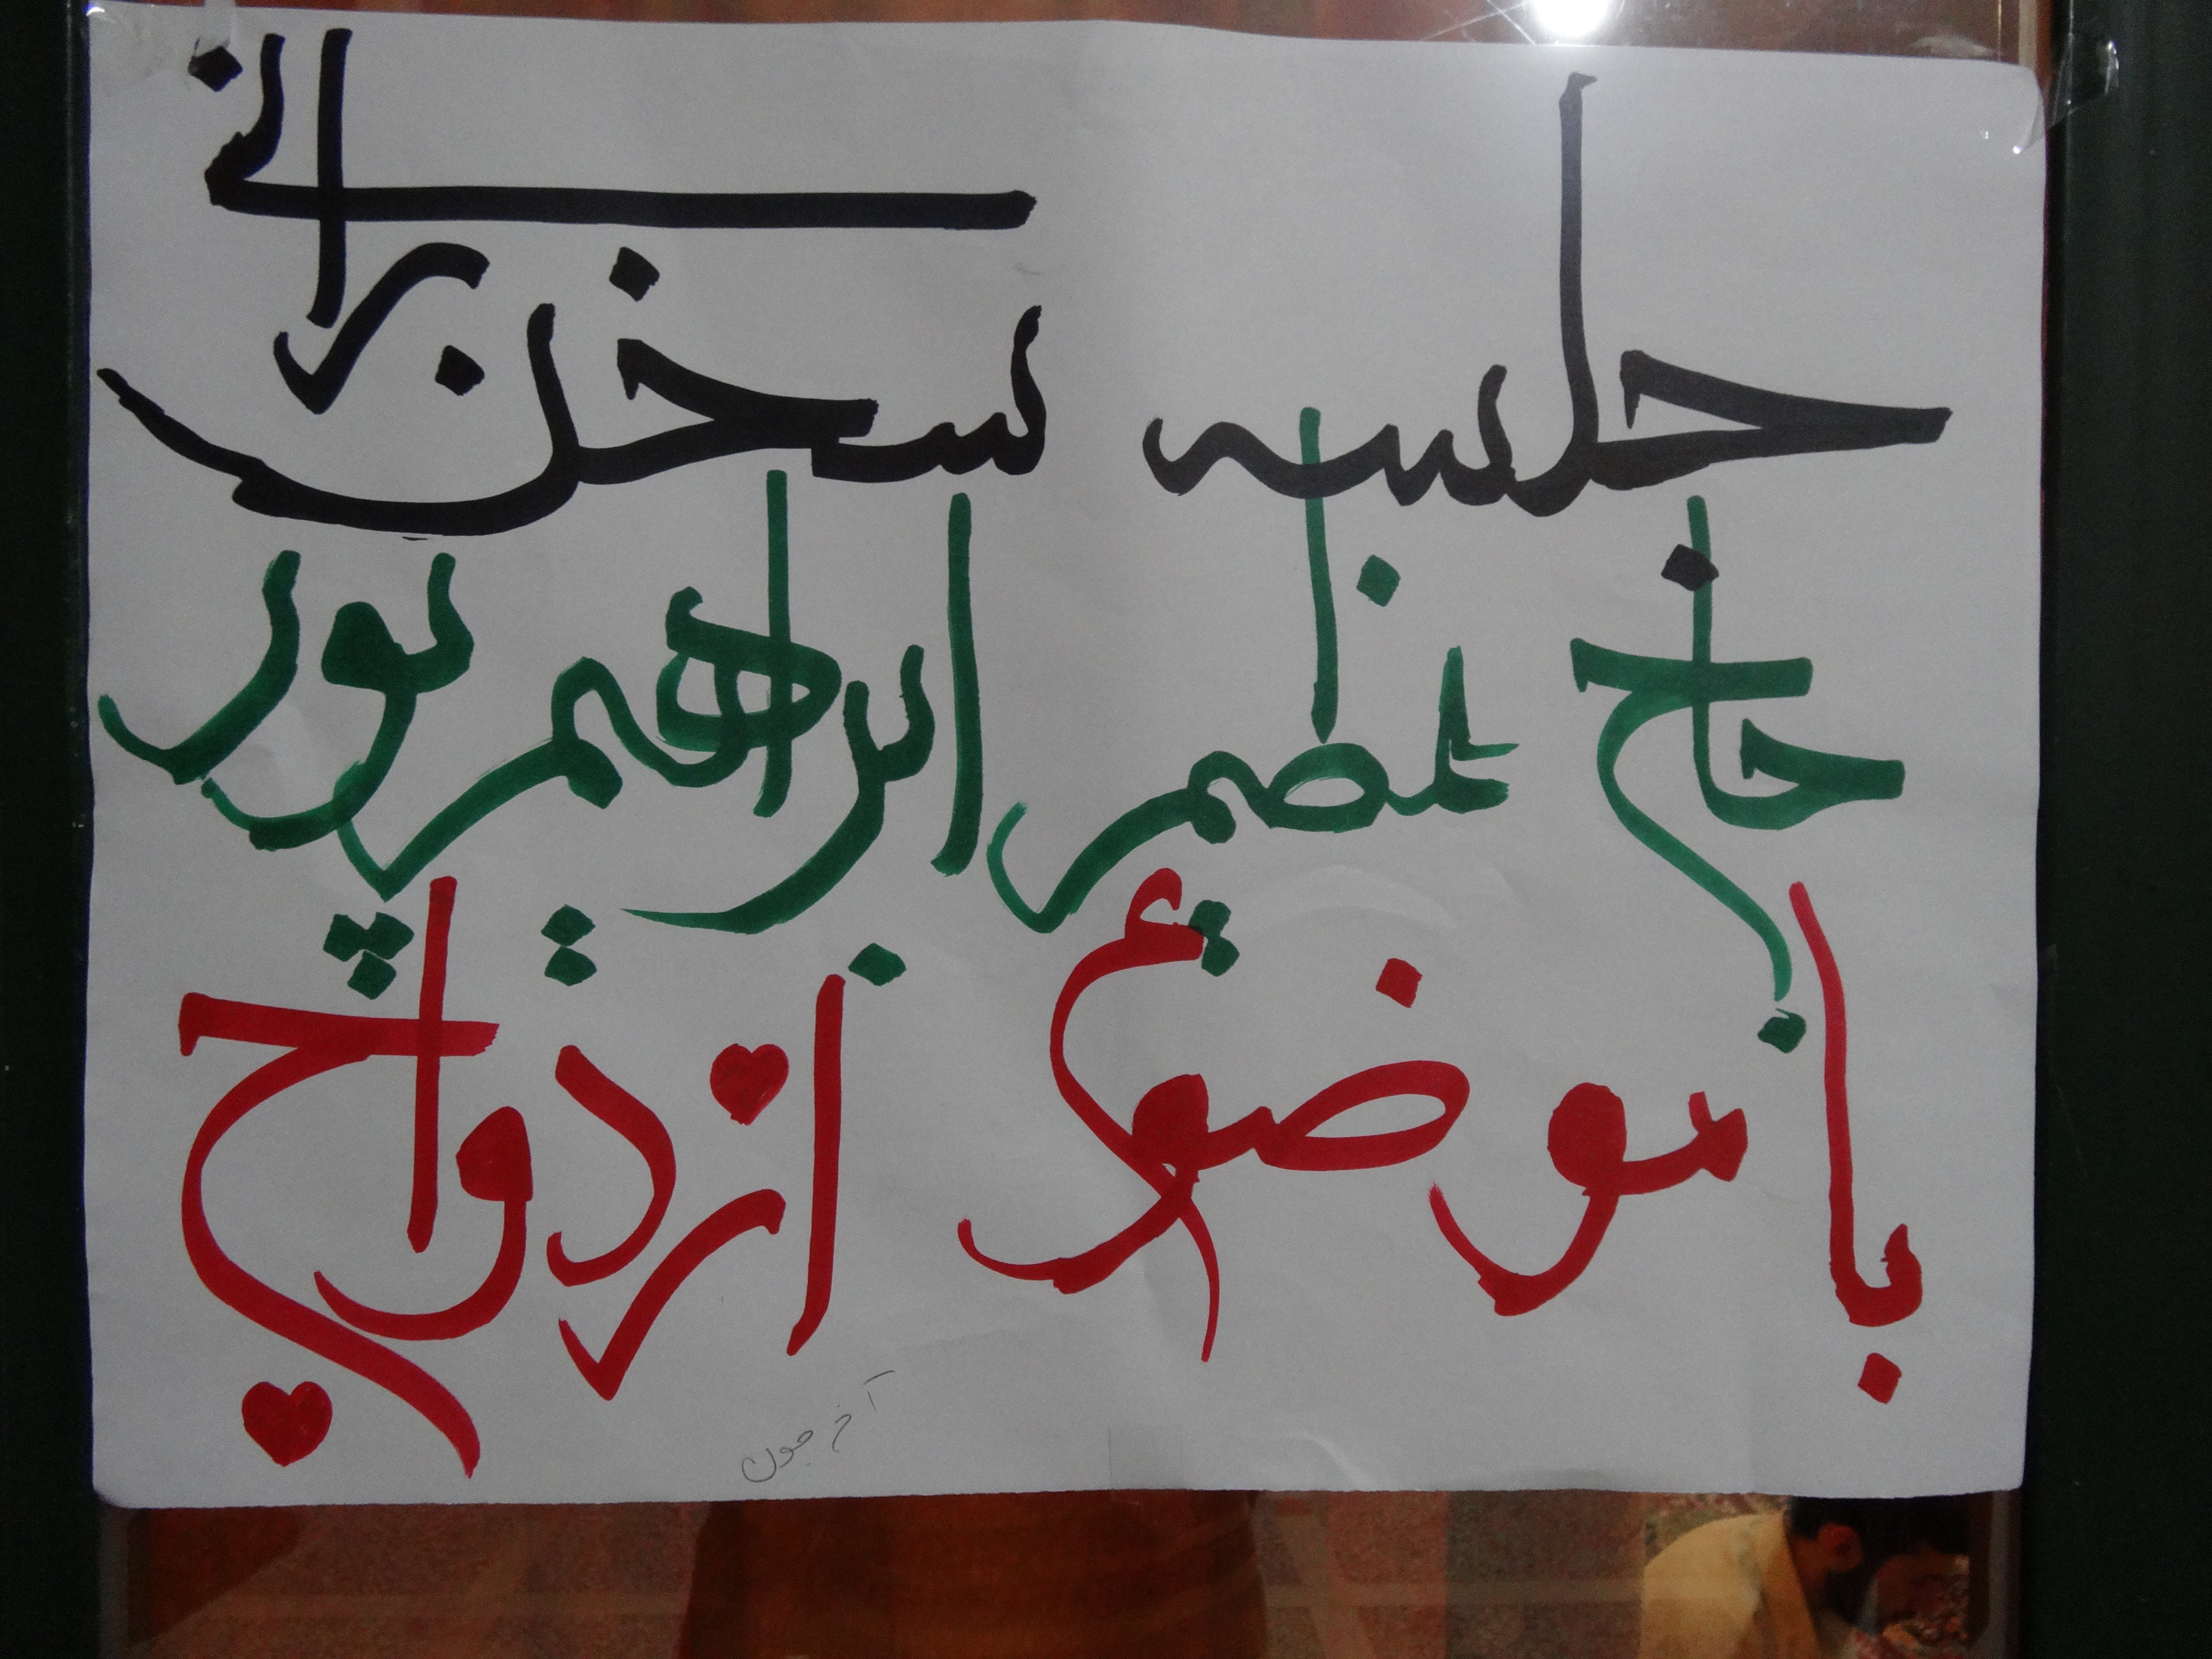 جلسه سخن رانی
حاج عظیم ابراهیم پور
با موضوع ازدواج
آخ جون